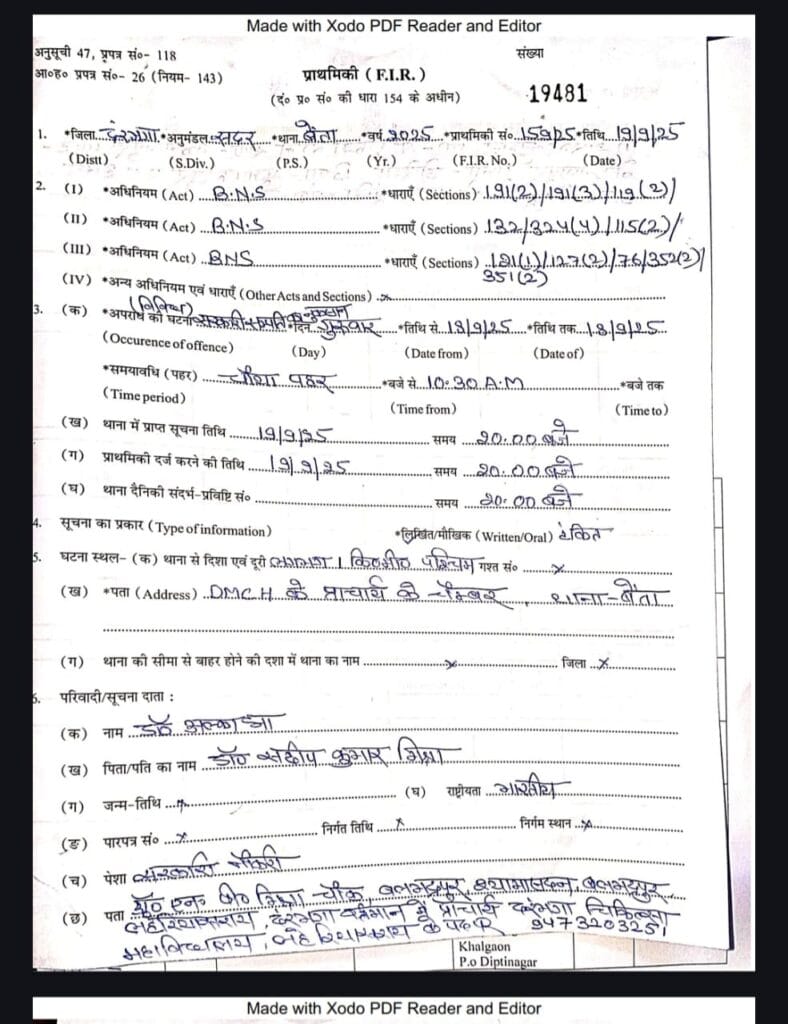 Made with Xodo PDF Reader and Editor
अनुसूची 47, प्रपत्र सं०- 118
संख्या
आ०ह० प्रपत्र सं०- 26 (नियम- 143)
प्राथमिकी ( F.I.R. )
(दं० प्र० सं० की धारा 154 के अधीन)
19481
1. *जिला दरभंगा *अनुमंडल सदर *थाना बेंता *वर्ष 2025 *प्राथमिकी सं० 159/25 *तिथि 19/9/25
(Distt) (S.Div.) (P.S.) (Yr.) (F.I.R. No.) (Date)
2. (I) *अधिनियम (Act) B.N.S *धाराएँ (Sections) 191(2)/191(3)/119(2)/
(II) *अधिनियम (Act) B.N.S *धाराएँ (Sections) 132/324(4)/115(2)/
(III) *अधिनियम (Act) BNS *धाराएँ (Sections) /127(2)/76/352(2)/
351(2)
(IV) *अन्य अधिनियम एवं धाराएँ (Other Acts and Sections) x
3. (क) *अपराध की घटना *दिन शुक्रवार *तिथि से 18/9/25 *तिथि तक 18/9/25
(Occurence of offence) (Day) (Date from) (Date of)
*समयावधि (पहर) चौथा पहर *बजे से 10:30 A.M *बजे तक
(Time period) (Time from) (Time to)
(ख) थाना में प्राप्त सूचना तिथि 19/9/25 समय 20.00 बजे
(ग) प्राथमिकी दर्ज करने की तिथि 19/9/25 समय 20.00 बजे
(घ) थाना दैनिकी संदर्भ-प्रविष्टि सं० समय 20.00 बजे
4. सूचना का प्रकार (Type of information) *लिखित/मौखिक (Written/Oral) टंकित
5. घटना स्थल- (क) थाना से दिशा एवं दूरी लगभग 1 कि०मी० पश्चिम गश्त सं० x
(ख) *पता (Address) DMCH के प्राचार्य के चैम्बर, थाना-बेंता
(ग) थाना की सीमा से बाहर होने की दशा में थाना का नाम x जिला x
6. परिवादी/सूचना दाता :
(क) नाम डॉ० अल्का झा
(ख) पिता/पति का नाम डॉ० संदीप कुमार मिश्रा
(ग) जन्म-तिथि x (घ) राष्ट्रीयता भारतीय
(ङ) पारपत्र सं० x निर्गत तिथि x निर्गम स्थान x
(च) पेशा सरकारी नौकरी
(छ) पता मिश्रा चौक, बलभद्रपुर, बलभद्रपुर,
लहेरियासराय, दरभंगा वर्तमान में प्राचार्य दरभंगा चिकित्सा
महाविद्यालय, लहेरियासराय के पद पर 9473203251
Khalgaon
P.o Diptinagar
Made with Xodo PDF Reader and Editor